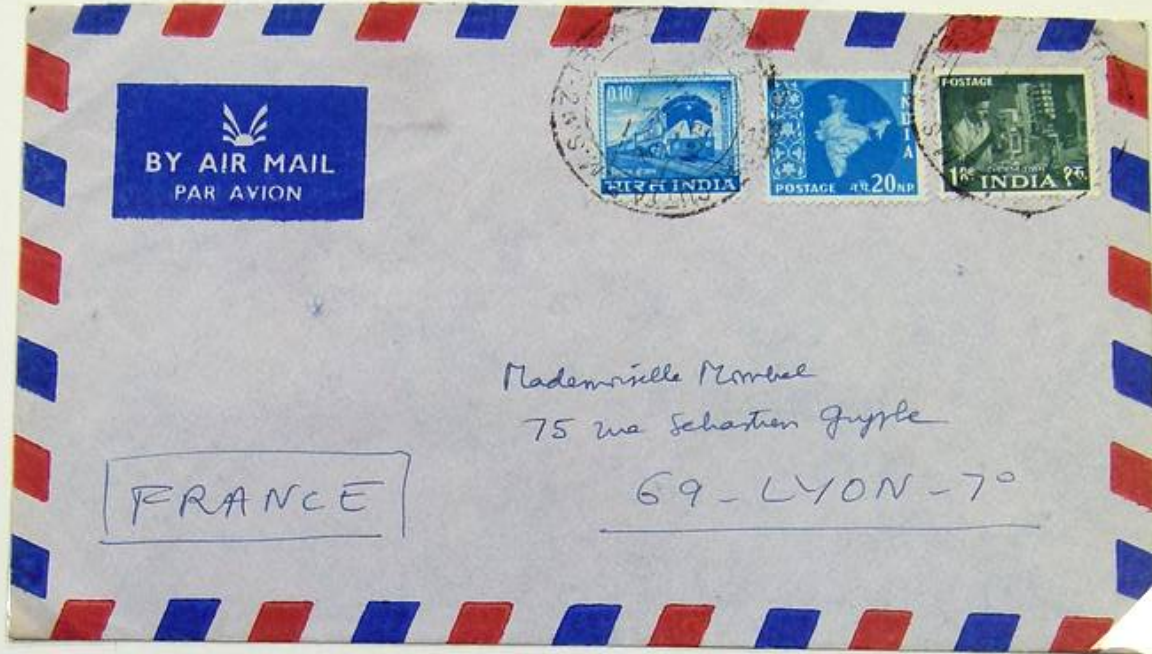 BY AIR MAIL
PAR AVION
0.10
भारत INDIA
INDIA
POSTAGE न.पै. 20 NP
POSTAGE
1 RE INDIA १ रु.
Mademoiselle
75 rue Sébastien Gryphe
69 - LYON - 7°
FRANCE